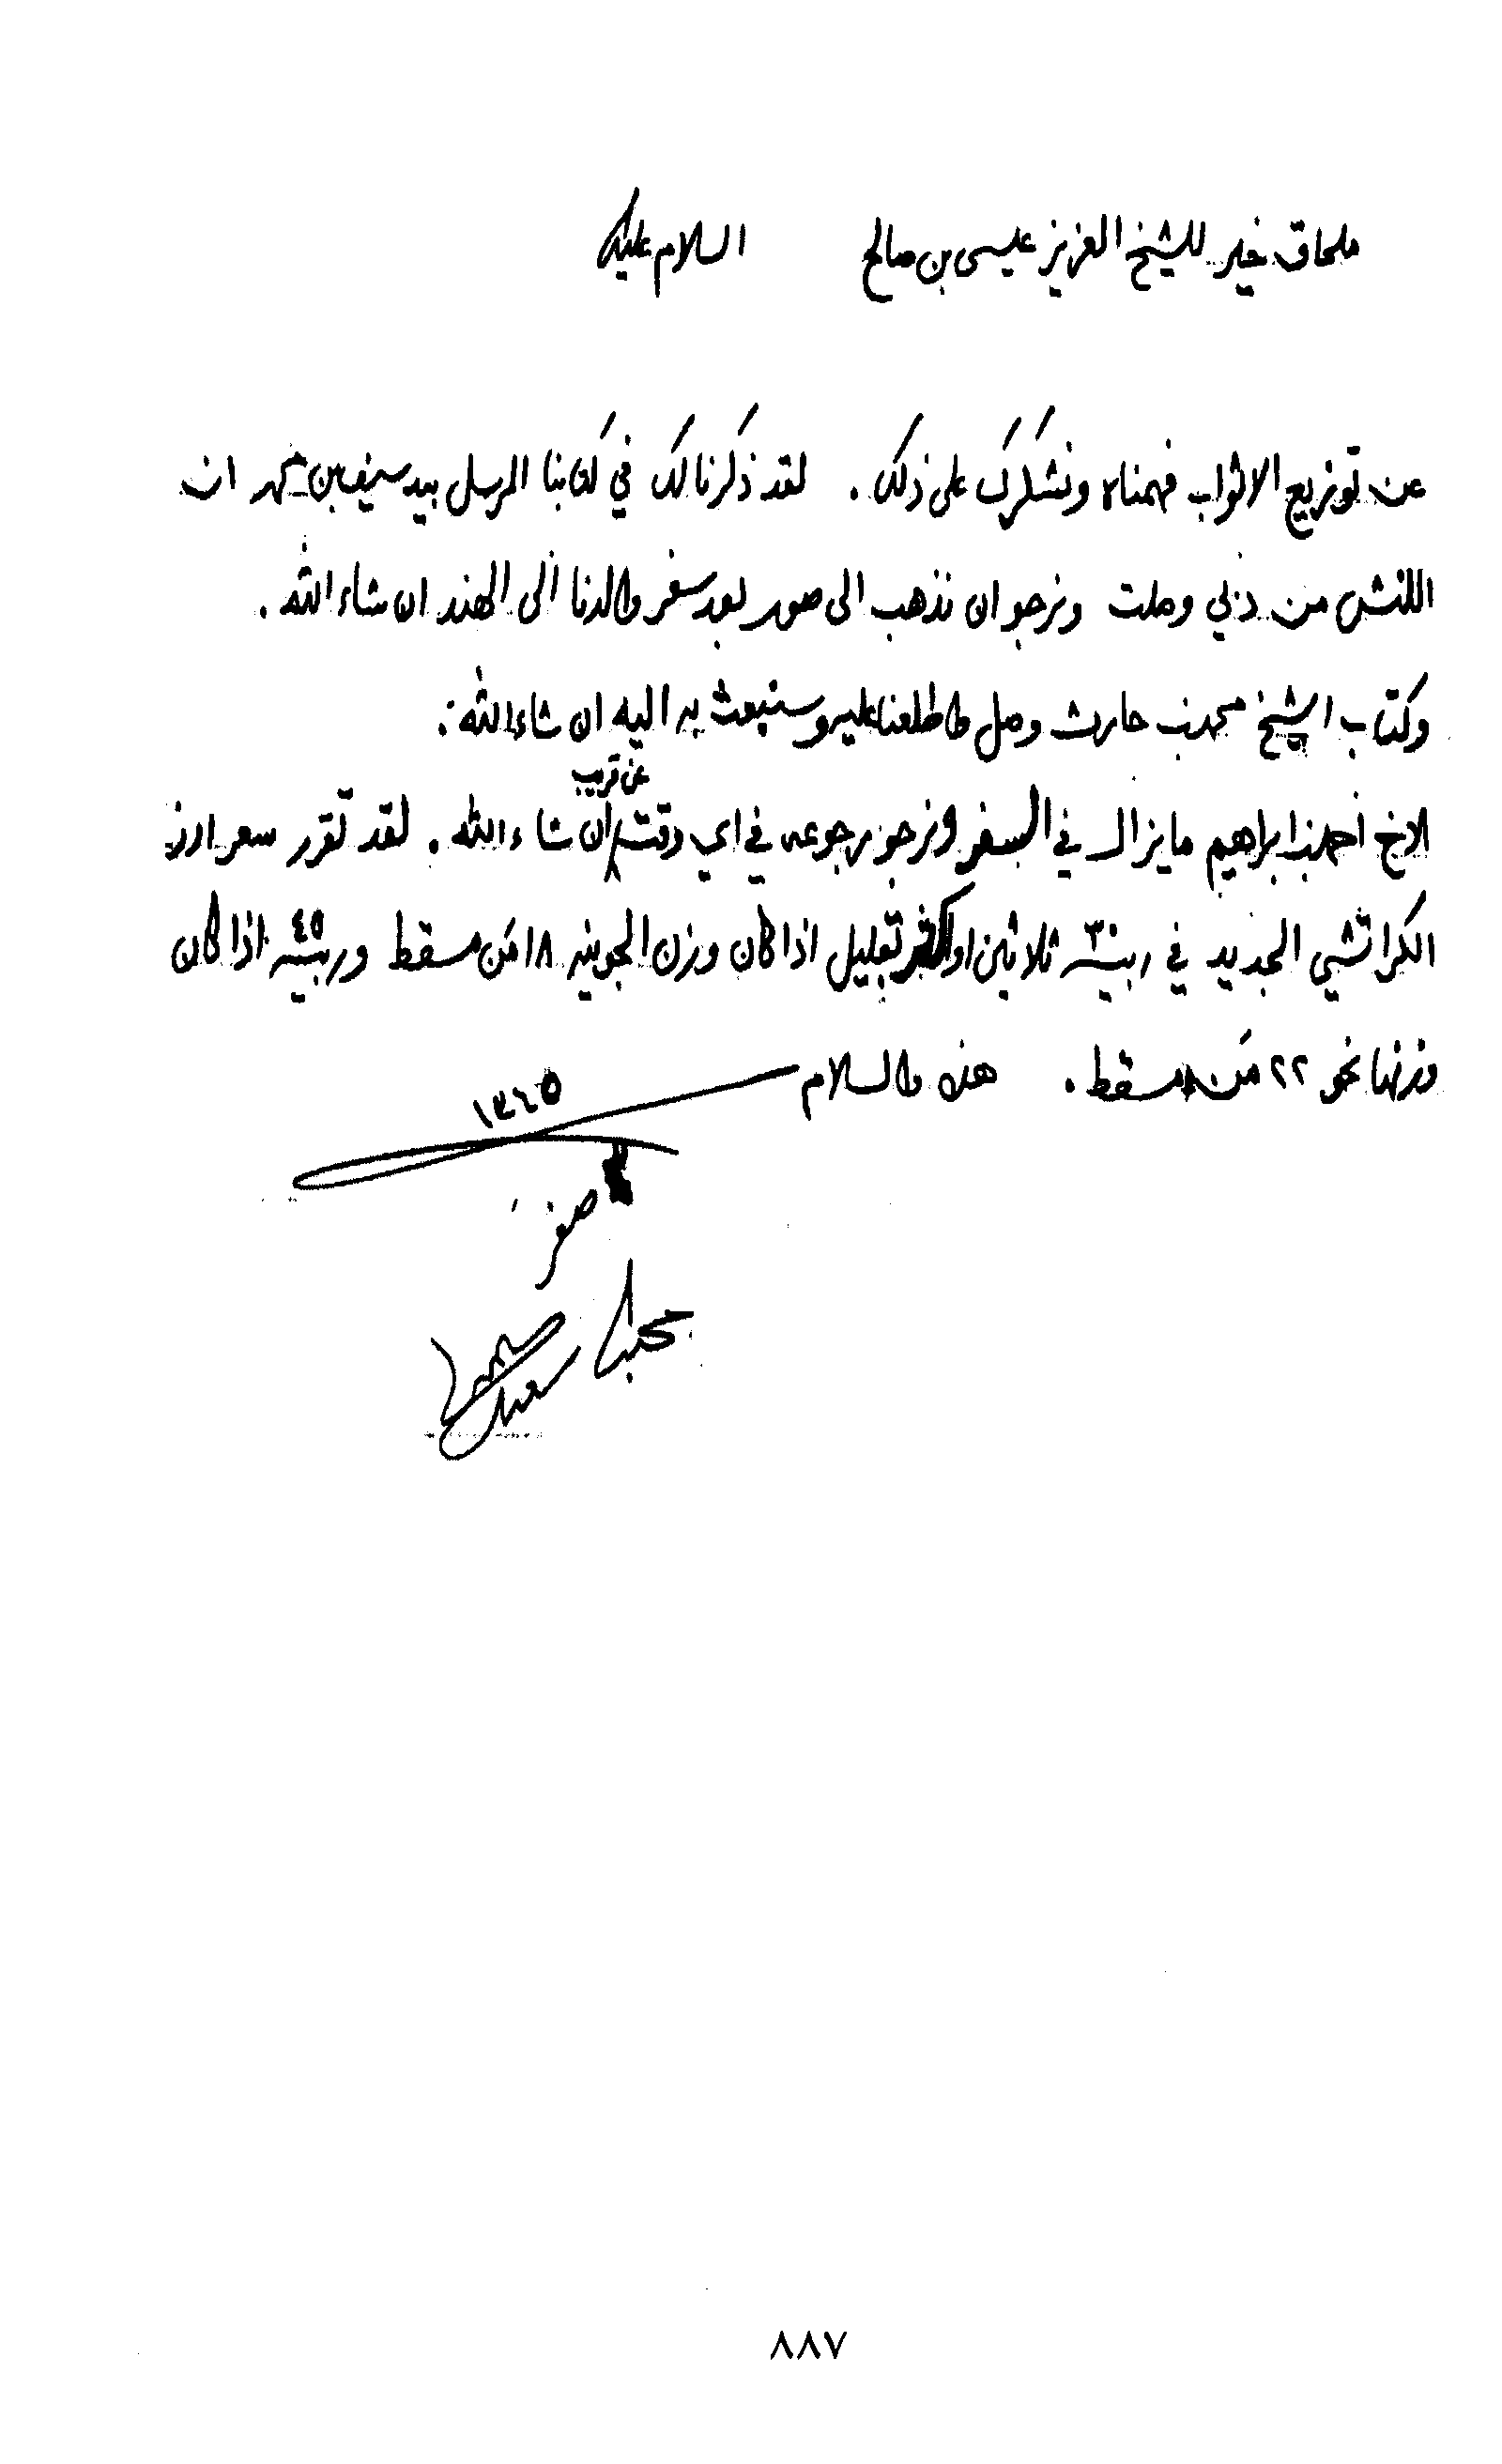 ملحاق خير للشيخ العزيز عيسى بن صالح السلام عليك
عن توزيع الاثواب فهمناه ونشكرك على ذلك . لقد ذكرنا لك في كتابنا المرسل بيد سيف بن مهر ان
اللنش من دبي وصلت ونرجو ان نذهب الى صور بعد سفر والدنا الى الهند ان شاء الله .
وكتاب الشيخ محمد بن حارث وصل واطلعنا عليه وسنبعث به اليه ان شاء الله .
عن قريب
الاخ احمد بن ابراهيم ما يزال في السفر ونرجو رجوعه في اي وقت ان شاء الله . لقد تقرر سعر ارز
الكراتشي الجديد في ربية ٣٠ ثلاثين او اكثر بقليل اذا كان وزن الجونيه ١٨ من مسقط وربية ٤٥ اذا كان
وزنها نحو ٢٢ من مسقط . هذه والسلام
١٣٤٥
صفر
محبك
سعيد
٨٨٧